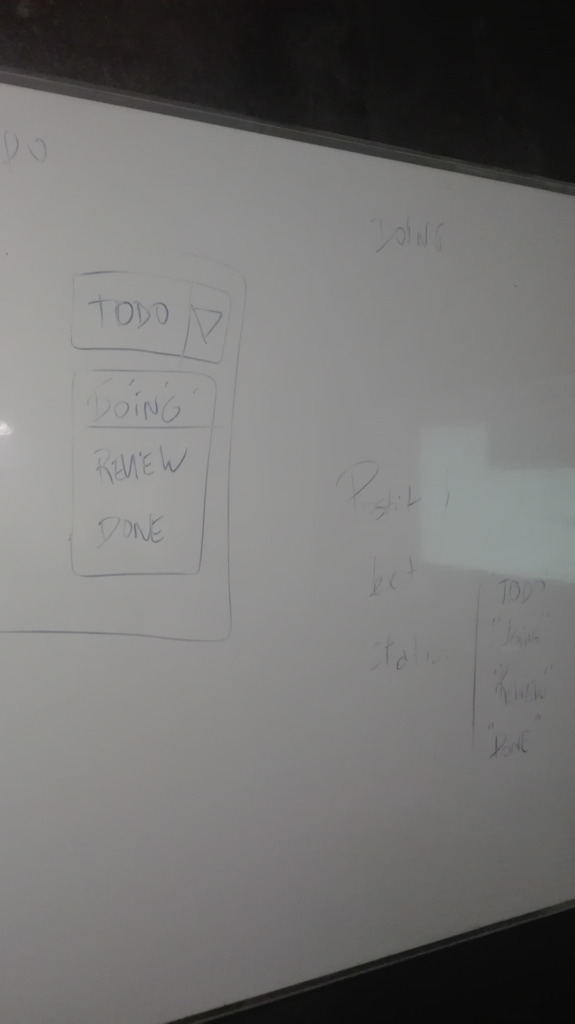 DO
DOING
TODO
DOING
REVIEW
DONE
Postit
text
TODO
"Doing"
"Review"
"DONE"